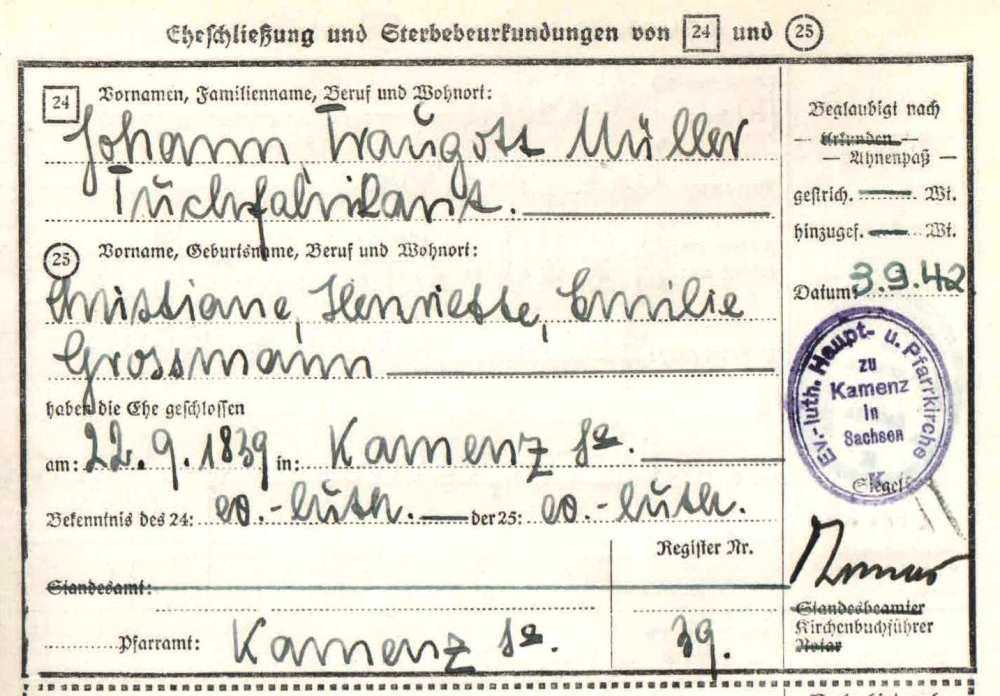 Eheschließung und Sterbebeurkundungen von 24 und 25
24 Vornamen, Familienname, Beruf und Wohnort:
Johann Traugott Müller
Tuchfabrikant.
25 Vorname, Geburtsname, Beruf und Wohnort:
Christiane, Henriette, Emilie
Grossmann
haben die Ehe geschlossen
am: 22. 9. 1839 in: Kamenz Sa.
Bekenntnis des 24: ev.-luth. der 25: ev.-luth.
Register Nr.
Standesamt:
Pfarramt: Kamenz Sa. 39.
Beglaubigt nach
Urkunden
— Ahnenpaß —
gestrich. Wt.
hinzugef. Wt.
Datum: 3.9.42
Ev.-luth. Haupt- u. Pfarrkirche
zu
Kamenz
in
Sachsen
Siegel
Standesbeamter
Kirchenbuchführer
Notar